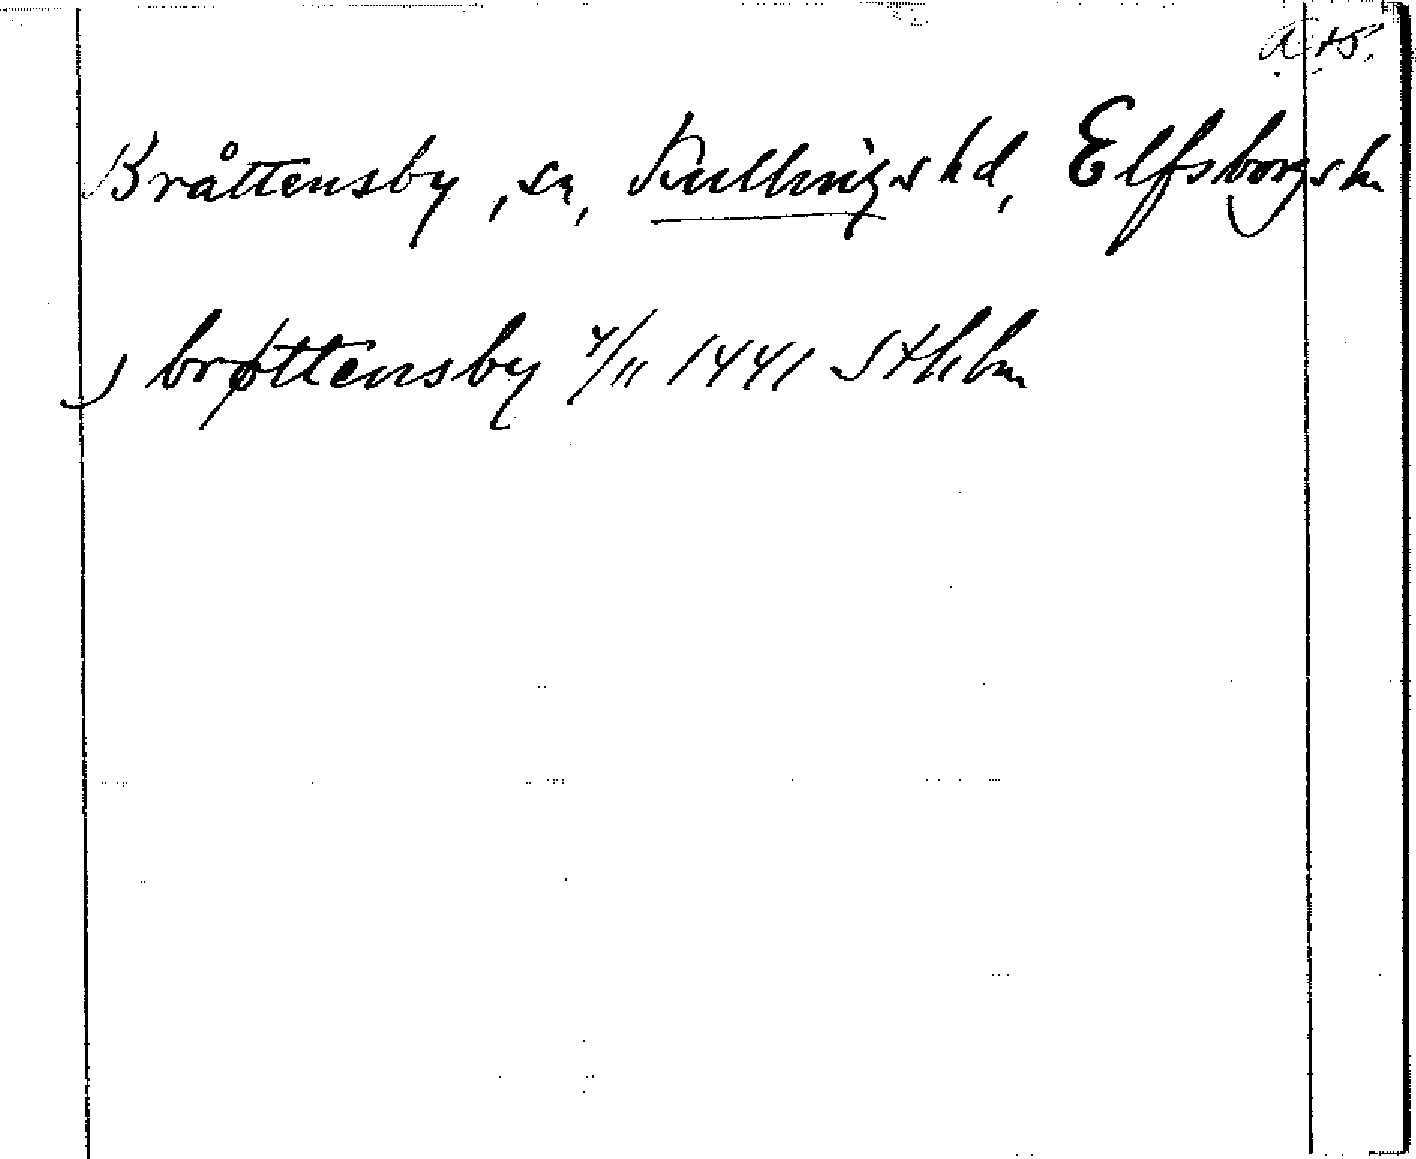 Bråttensby, sn, Kullings hd, Elfsborgs ln
j brøttensby 4/11 1441 Sthlm